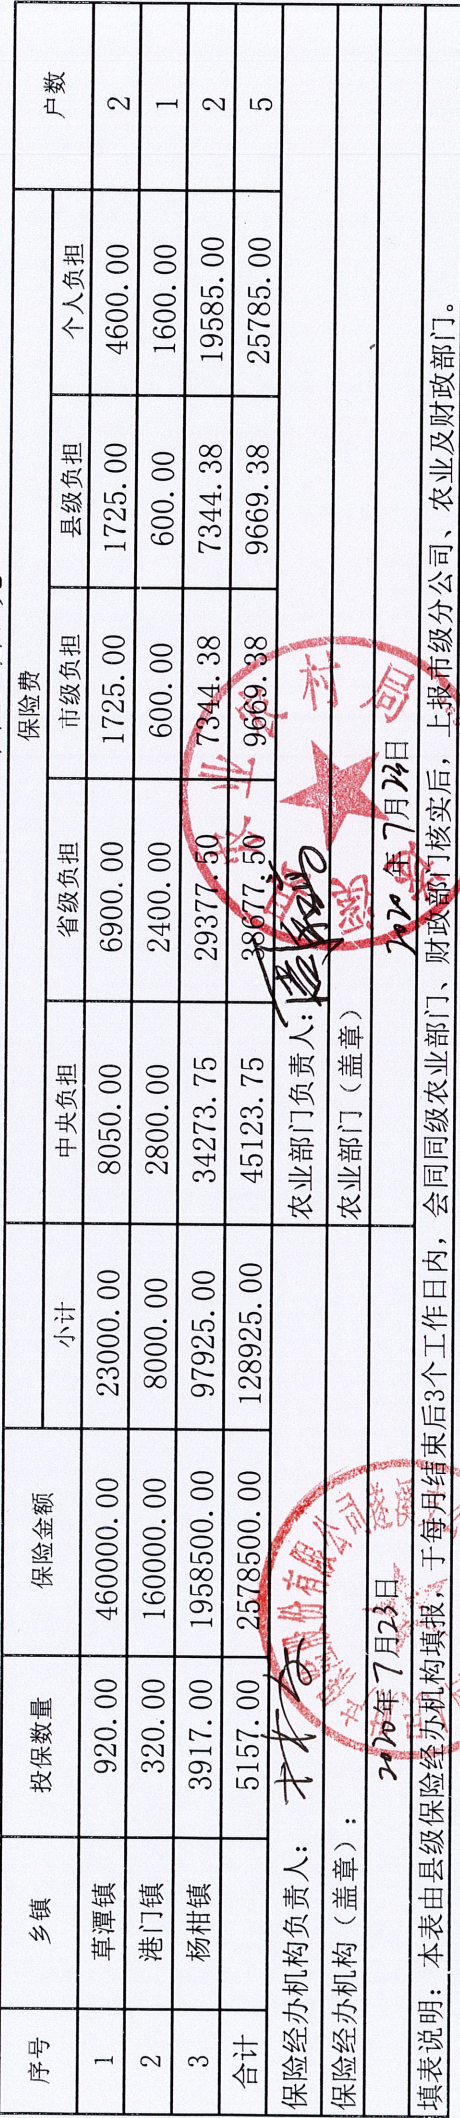 序号 乡镇 投保数量 保险金额 保险费 户数
小计 中央负担 省级负担 市级负担 县级负担 个人负担
1 草潭镇 920.00 460000.00 23000.00 8050.00 6900.00 1725.00 1725.00 4600.00 2
2 港门镇 320.00 160000.00 8000.00 2800.00 2400.00 600.00 600.00 1600.00 1
3 杨柑镇 3917.00 1958500.00 97925.00 34273.75 29377.50 7344.38 7344.38 19585.00 2
合计 5157.00 2578500.00 128925.00 45123.75 38677.50 9669.38 9669.38 25785.00 5
保险经办机构负责人: 农业部门负责人:
保险经办机构（盖章）: 农业部门（盖章）
2020年7月23日 2020年7月23日
填表说明: 本表由县级保险经办机构填报, 于每月结束后3个工作日内, 会同同级农业部门、财政部门核实后, 上报市级分公司、农业及财政部门。
股份有限公司遂溪
遂溪县农业农村局